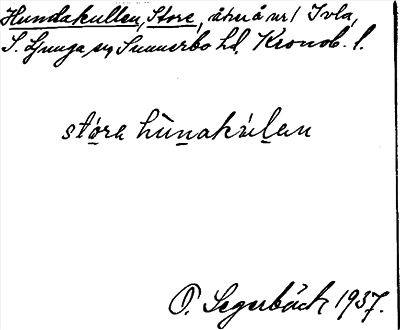 Hundakullen, Store, åker å nr 1 Ivla,
S. Ljunga sn Sunnerbo hd, Kronob. l.
stóra hùnakúlen
O. Segerbäck 1937.